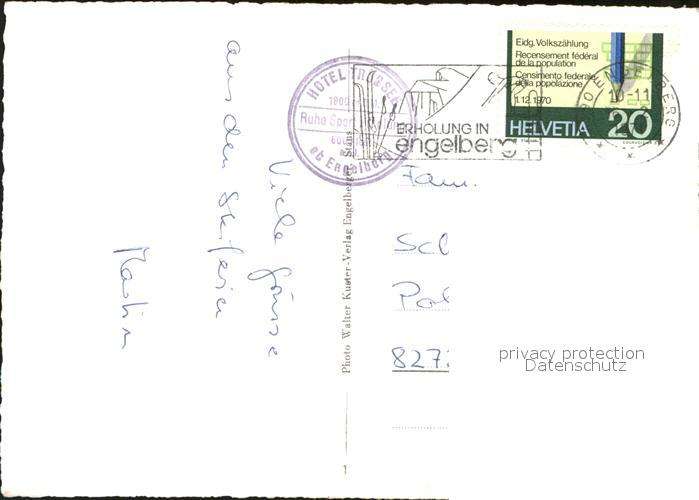 Viele Grüsse
aus den Skiferien
Martin
Photo Walter Kuster-Verlag Engelberg Stans
1
HOTEL TRÜBSEE
Ruhe Sport
ob Engelberg
ERHOLUNG IN
engelberg
Eidg. Volkszählung
Recensement fédéral
de la population
Censimento federale
della popolazione
1.12.1970
HELVETIA 20
10-11
Fam.
827
privacy protection
Datenschutz